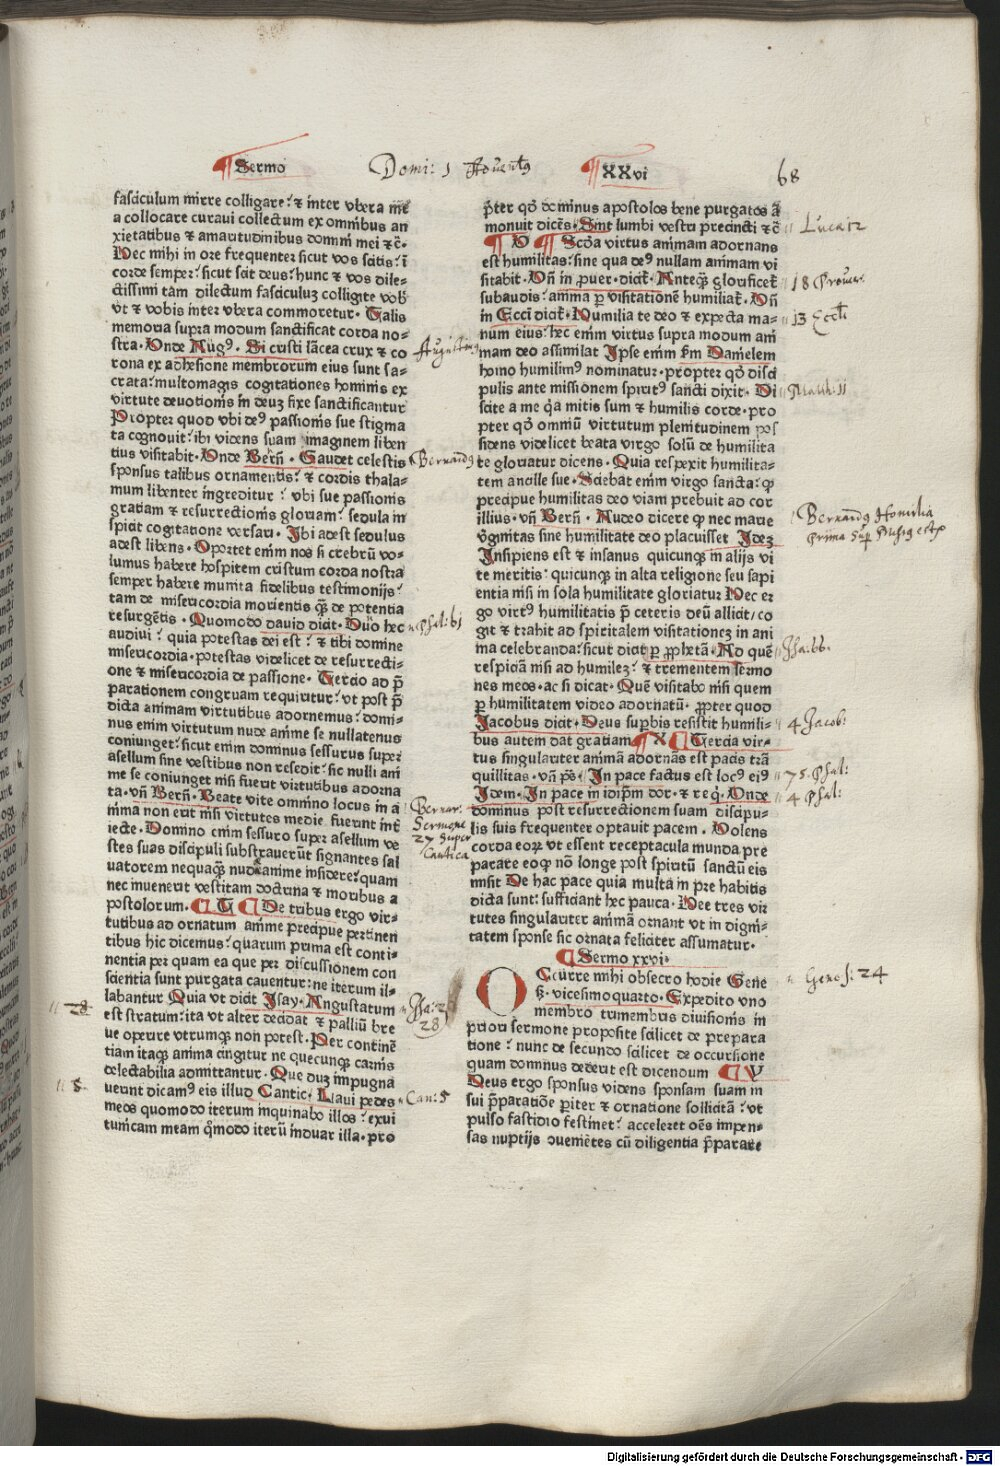 ¶Sermo
Domi: 1 Aduentꝰ
¶XXvi
68
fasciculum mirre colligare: ⁊ inter vbera mẽ
a collocare curaui collectum ex omnibus an
xietatibus ⁊ amaritudinibus domini mei ⁊c̃.
Hec mihi in ore frequenter sicut vos scitis: ĩ
corde semper: sicut scit deus: hunc ⁊ vos dile-
ctissimi tam dilectum fasciculuꝫ colligite vob̃
vt ⁊ vobis inter vbera commoretur. Talis
memoria supra modum sanctificat corda no-
stra. Onde Augꝰ. Si cristi lãcea crux ⁊ co
rona ex adhesione membrorum eius sunt sa-
crata: multomagis cogitationes hominis ex
virtute deuotionis in deuꝫ fixe sanctificantur
Propter quod vbi deꝰ passionis sue stigma
ta cognouit: ibi videns suam imaginem liben
tius visitabit. Onde Bern̄. Gaudet celestis
sponsus talibus ornamentis: ⁊ cordis thala-
mum libenter ingreditur: vbi sue passionis
gratiam ⁊ resurrectionis gloriam: sedula in
spicit cogitatione versari. Ibi adest sedulus
adest libens. Oportet enim nos si crebrũ vo-
lumus habere hospitem cristum corda nostra
semper habere munita fidelibus testimonijs:
tam de misericordia morientis qꝫ̃ de potentia
resurgẽtis. Quomodo dauid dicit. Duo hec
audiui: quia potestas dei est: ⁊ tibi domine
misericordia. potestas videlicet de resurrecti-
one ⁊ misericordia de passione. Tercio ad p̃
parationem congruam requiritur: vt post p̃
dicta animam virtutibus adornemus: domi-
nus enim virtutum nude anime se nullatenus
coniunget: sicut enim dominus sessurus super
asellum sine vestibus non resedit: sic nulli ani
me se coniunget nisi fuerit virtutibus adorna
ta. vñ Bern̄. Beate vite omnino locus in a
nima non erit nisi virtutes medie fuerint int̃
iecte. Domino enim sessuro super asellum ve
stes suas discipuli substrauerũt signantes sal
uatorem nequaqꝫ nude anime insidere: quam
nec inuenerit vestitam doctrina ⁊ moribus a
postolorum. ¶ T ¶ De tribus ergo vir-
tutibus ad ornatum anime precipue pertinen
tibus hic dicemus: quarum prima est conti-
nentia per quam ea que per discussionem con
scientia sunt purgata cauentur: ne iterum il-
labantur Quia vt dicit Isay. Angustatum
est stratum: ita vt alter decidat ⁊ palliũ bre
ue operire vtrumque non potest. Per continẽ
tiam itaqꝫ anima cingitur ne quecunqꝫ carnis
delectabilia admittantur. Que duꝫ impugna
uerint dicam̃ eis illud Cantic. Laui pedes
meos quomodo iterum inquinabo illos: exui
tunicam meam q̃modo iterũ induar illa. pro
p̃ter qđ dominus apostolos bene purgatos ã
monuit dicẽs. Sint lumbi vestri precincti ⁊c̃
¶ V ¶ Scđa virtus animam adornans
est humilitas: sine qua deꝰ nullam animam vi
sitabit. Vñ in ꝓuer. dicit̃. Anteqꝫ glorificet̃
subaudis: anima ꝑ visitationẽ humiliat̃. Vñ
in Ecci dicit̃. Humilia te deo ⁊ expecta ma-
num eius: hec enim virtus supra modum ani
mam deo assimilat Ipse enim ẽm Danielem
homo humilimꝰ nominatur. propter qđ disci
pulis ante missionem spiritꝰ sancti dixit. Di
scite a me q̃a mitis sum ⁊ humilis corde. pro
pter qđ omniũ virtutum plenitudinem pos
sidens videlicet beata virgo solũ de humilita
te gloriatur dicens. Quia respexit humilita-
tem ancille sue. Sciebat enim virgo sancta: ꝙ
precipue humilitas deo viam prebuit ad cor
illius. vñ Bern̄. Audeo dicere ꝙ nec marie
v̈ginitas sine humilitate deo placuisset Ideꝫ
Insipiens est ⁊ insanus quicunqꝫ in alijs vi
te meritis: quicunqꝫ in alta religione seu sapi
entia nisi in sola humilitate gloriatur Hec er
go virtꝰ humilitatis p̃ ceteris deũ allicit/ co
git ⁊ trahit ad spiritalem visitationeꝫ in ani
ma celebranda: sicut dicit ꝑ ꝓphetã. Ad quẽ
respiciã nisi ad humileꝫ: ⁊ trementem sermo
nes meos. ac si dicat. Quẽ visitabo nisi quem
ꝑ humilitatem video adornatũ. ꝓpter quod
Jacobus dicit. Deus supbis resistit humili-
bus autem dat gratiam ¶ X ¶ Tercia vir-
tus singulariter animã adornãs est pacis trã
quillitas. vñ p̃s. In pace factus est locꝰ eiꝰ
Idem. In pace in idip̃m dor. ⁊ reꝗ. Onde
dominus post resurrectionem suam discipu-
lis suis frequenter optauit pacem. Uolens
corda eoꝝ vt essent receptacula munda pre
parate eoqꝫ nõ longe post spiritũ sanctũ eis
misit De hac pace quia multa in p̃re habitis
dicta sunt: sufficiant hec pauca. Hee tres vir
tutes singulariter animã ornant vt in digni-
tatem sponse sic ornata feliciter assumatur.
¶ Sermo xxvi.
OCcurre mihi obsecro hodie Gene
ẞ. vicesimoquarto. Expedito vno
membro trimembris diuisionis in
priori sermone proposite scilicet de prepara
tione: nunc de secundo scilicet de occursione
quam dominus dederit est dicendum ¶ Y
Deus ergo sponsus videns sponsam suam in
sui p̃paratiõe ꝑiter ⁊ ornatione sollicitã: vt
pulso fastidio festinet: acceleret oẽs impen-
sas nuptijs ɔueniẽtes cũ diligentia p̃parare
Augustinꝰ
Bernardꝰ
Psal: 61
Bernar:
Sermone
27 super
Cantica
28
Jsa: 2
28
8.
Can: 5
Luca 12
18 Prouer.
13 Eccl:
Math: 11
Bernardꝰ Homilia
prima sup Missus est
Jsa: 66.
4 Jacob:
75. Psal:
4 Psal:
Genes: 24
Digitalisierung gefördert durch die Deutsche Forschungsgemeinschaft - DFG